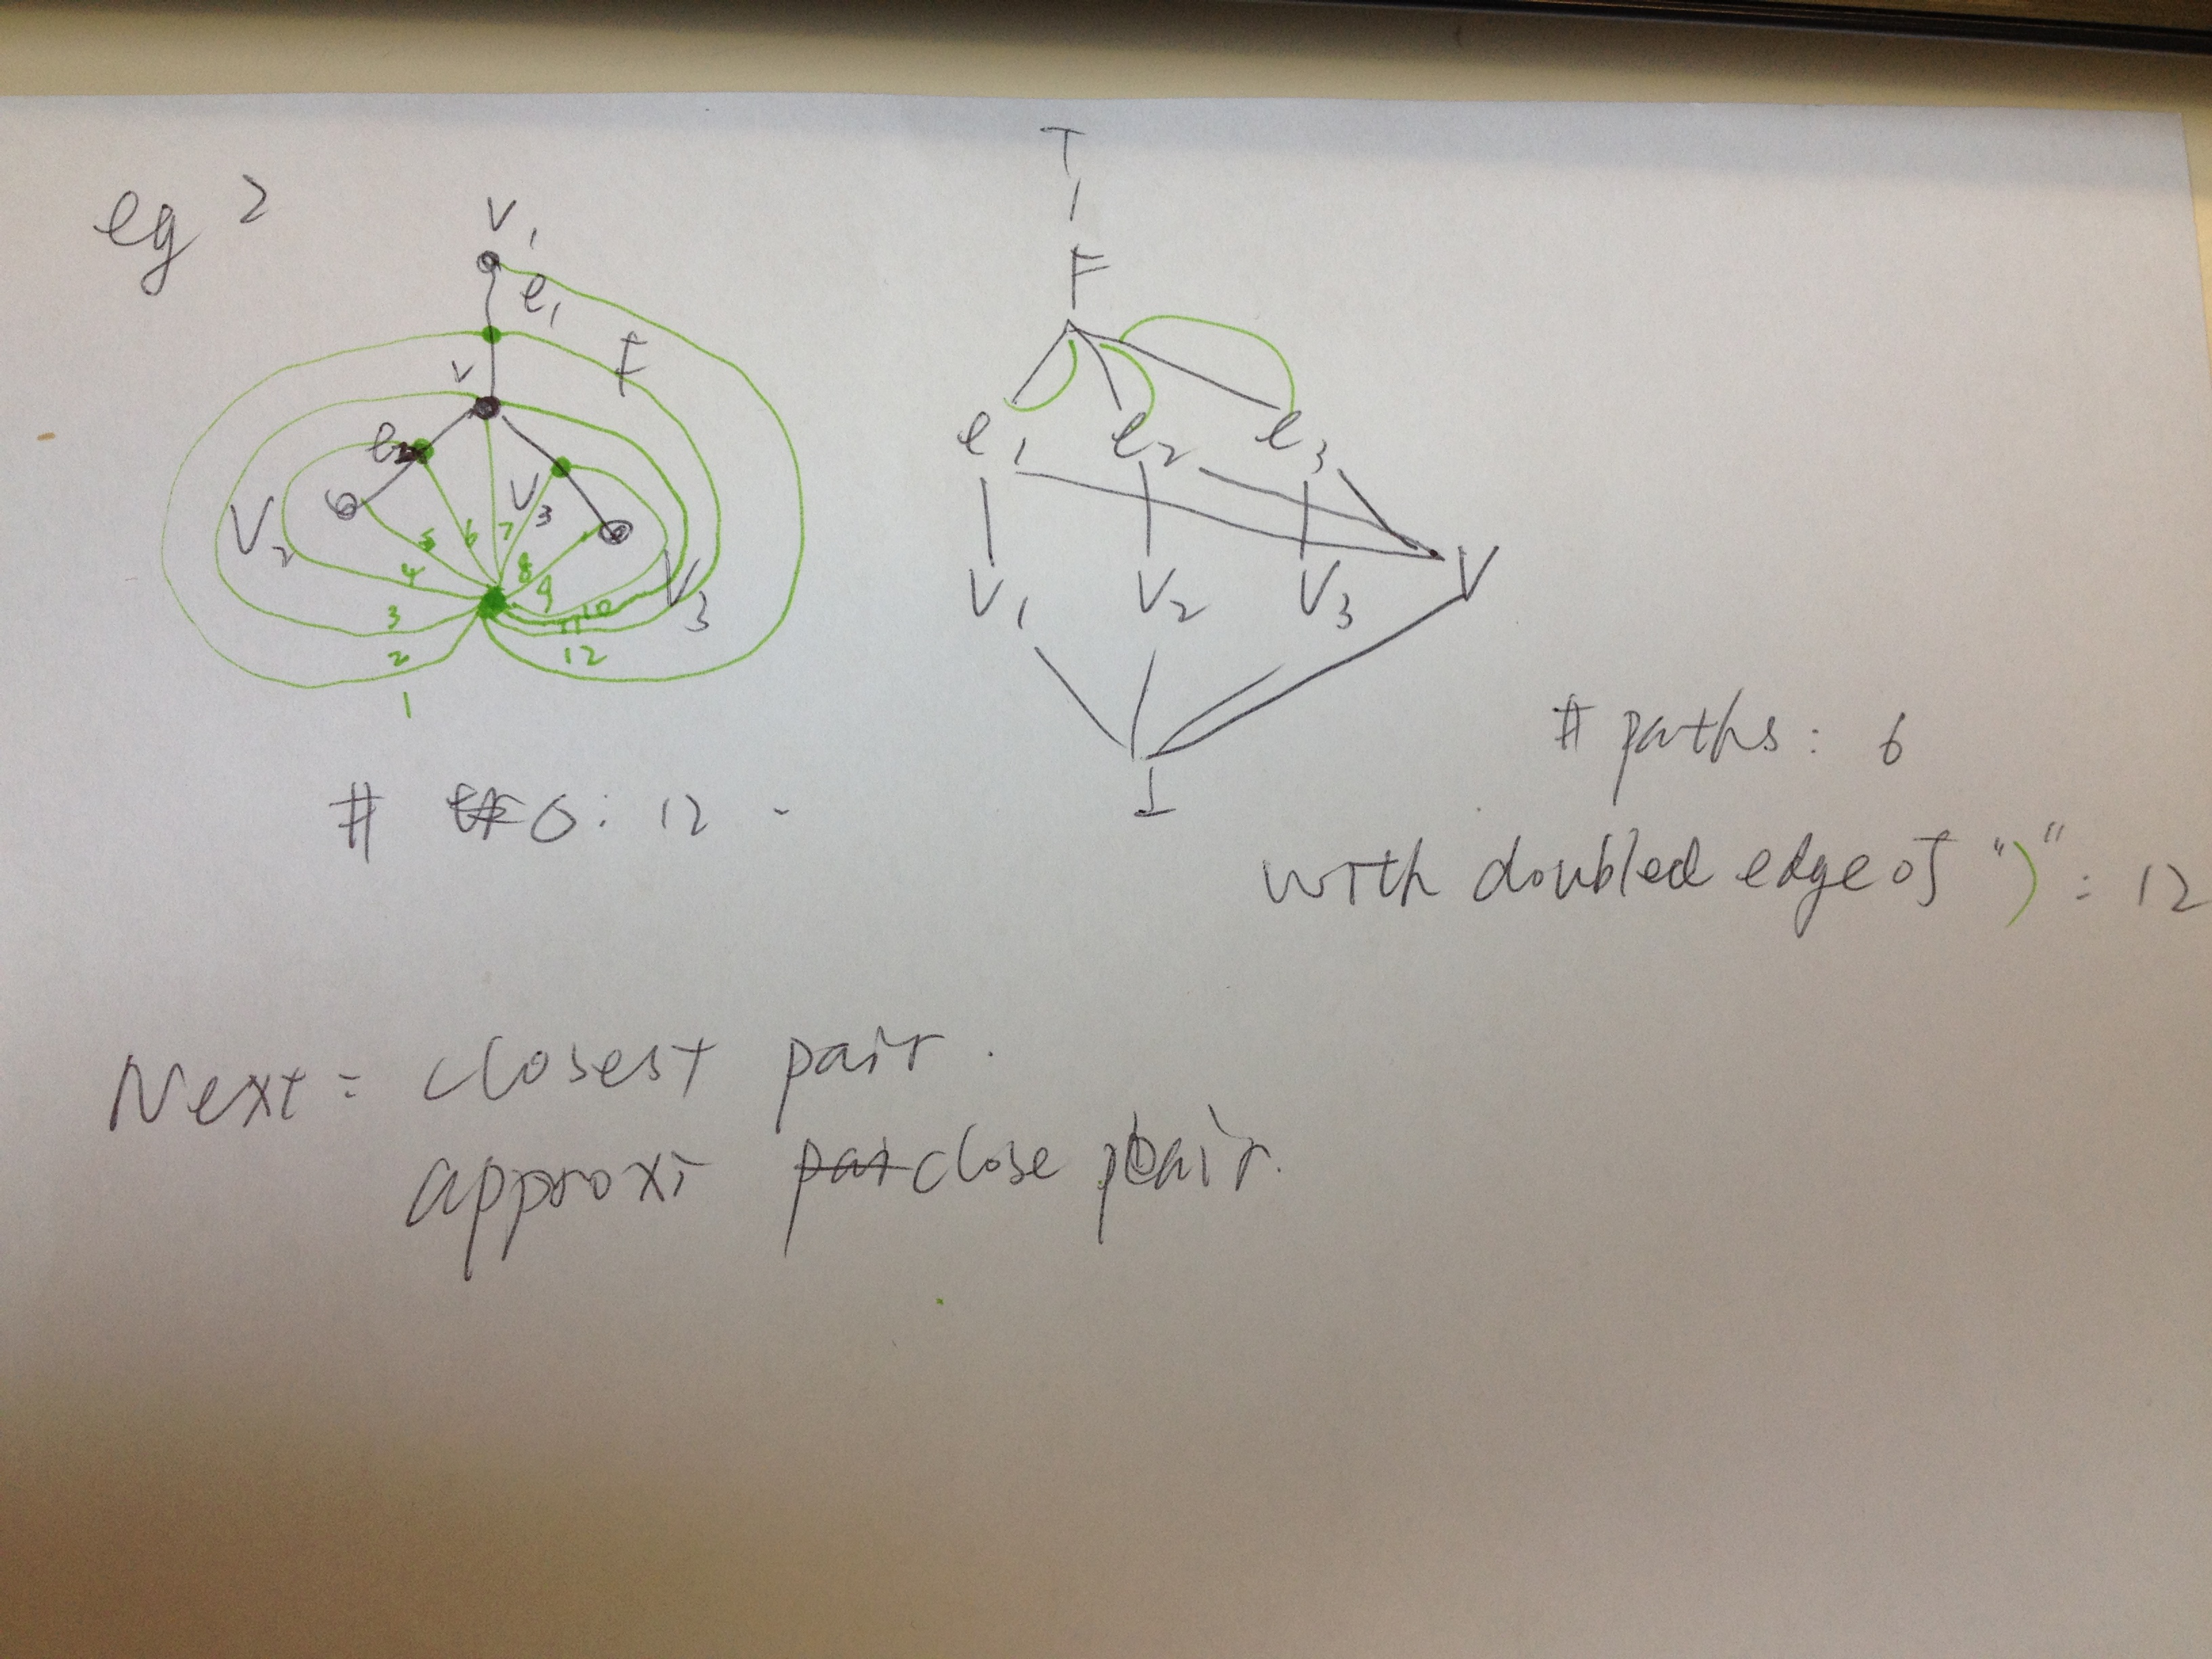 eg 2
V1
e1
F
V
e2
V3
V2
5 6 7
4 8
3 9 10
V3
11
2 12
1
# σ: 12
T
F
e1 e2 e3
V1 V2 V3 V
I
# paths: 6
with doubled edge of ")" : 12
Next: closest pair.
approxi close pair.